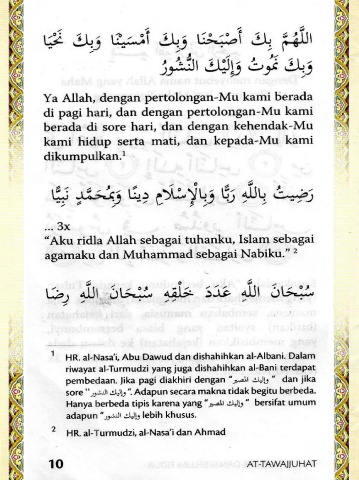 اللَّهُمَّ بِكَ أَصْبَحْنَا وَبِكَ أَمْسَيْنَا وَبِكَ نَحْيَا
وَبِكَ نَمُوتُ وَإِلَيْكَ النُّشُورُ
Ya Allah, dengan pertolongan-Mu kami berada
di pagi hari, dan dengan pertolongan-Mu kami
berada di sore hari, dan dengan kehendak-Mu
kami hidup serta mati, dan kepada-Mu kami
dikumpulkan.¹
رَضِيتُ بِاللَّهِ رَبًّا وَبِالْإِسْلَامِ دِينًا وَبِمُحَمَّدٍ نَبِيًّا
... 3x
“Aku ridla Allah sebagai tuhanku, Islam sebagai
agamaku dan Muhammad sebagai Nabiku.” ²
سُبْحَانَ اللَّهِ عَدَدَ خَلْقِهِ سُبْحَانَ اللَّهِ رِضَا
1 HR. al-Nasa'i, Abu Dawud dan dishahihkan al-Albani. Dalam
riwayat al-Turmudzi yang juga dishahihkan al-Bani terdapat
pembedaan. Jika pagi diakhiri dengan “وإليك المصير” dan jika
sore “وإليك النشور”. Adapun secara makna tidak begitu berbeda.
Hanya berbeda tipis karena yang “وإليك المصير” bersifat umum
adapun “وإليك النشور” lebih khusus.
2 HR. al-Turmudzi, al-Nasa'i dan Ahmad
10 AT-TAWAJJUHAT